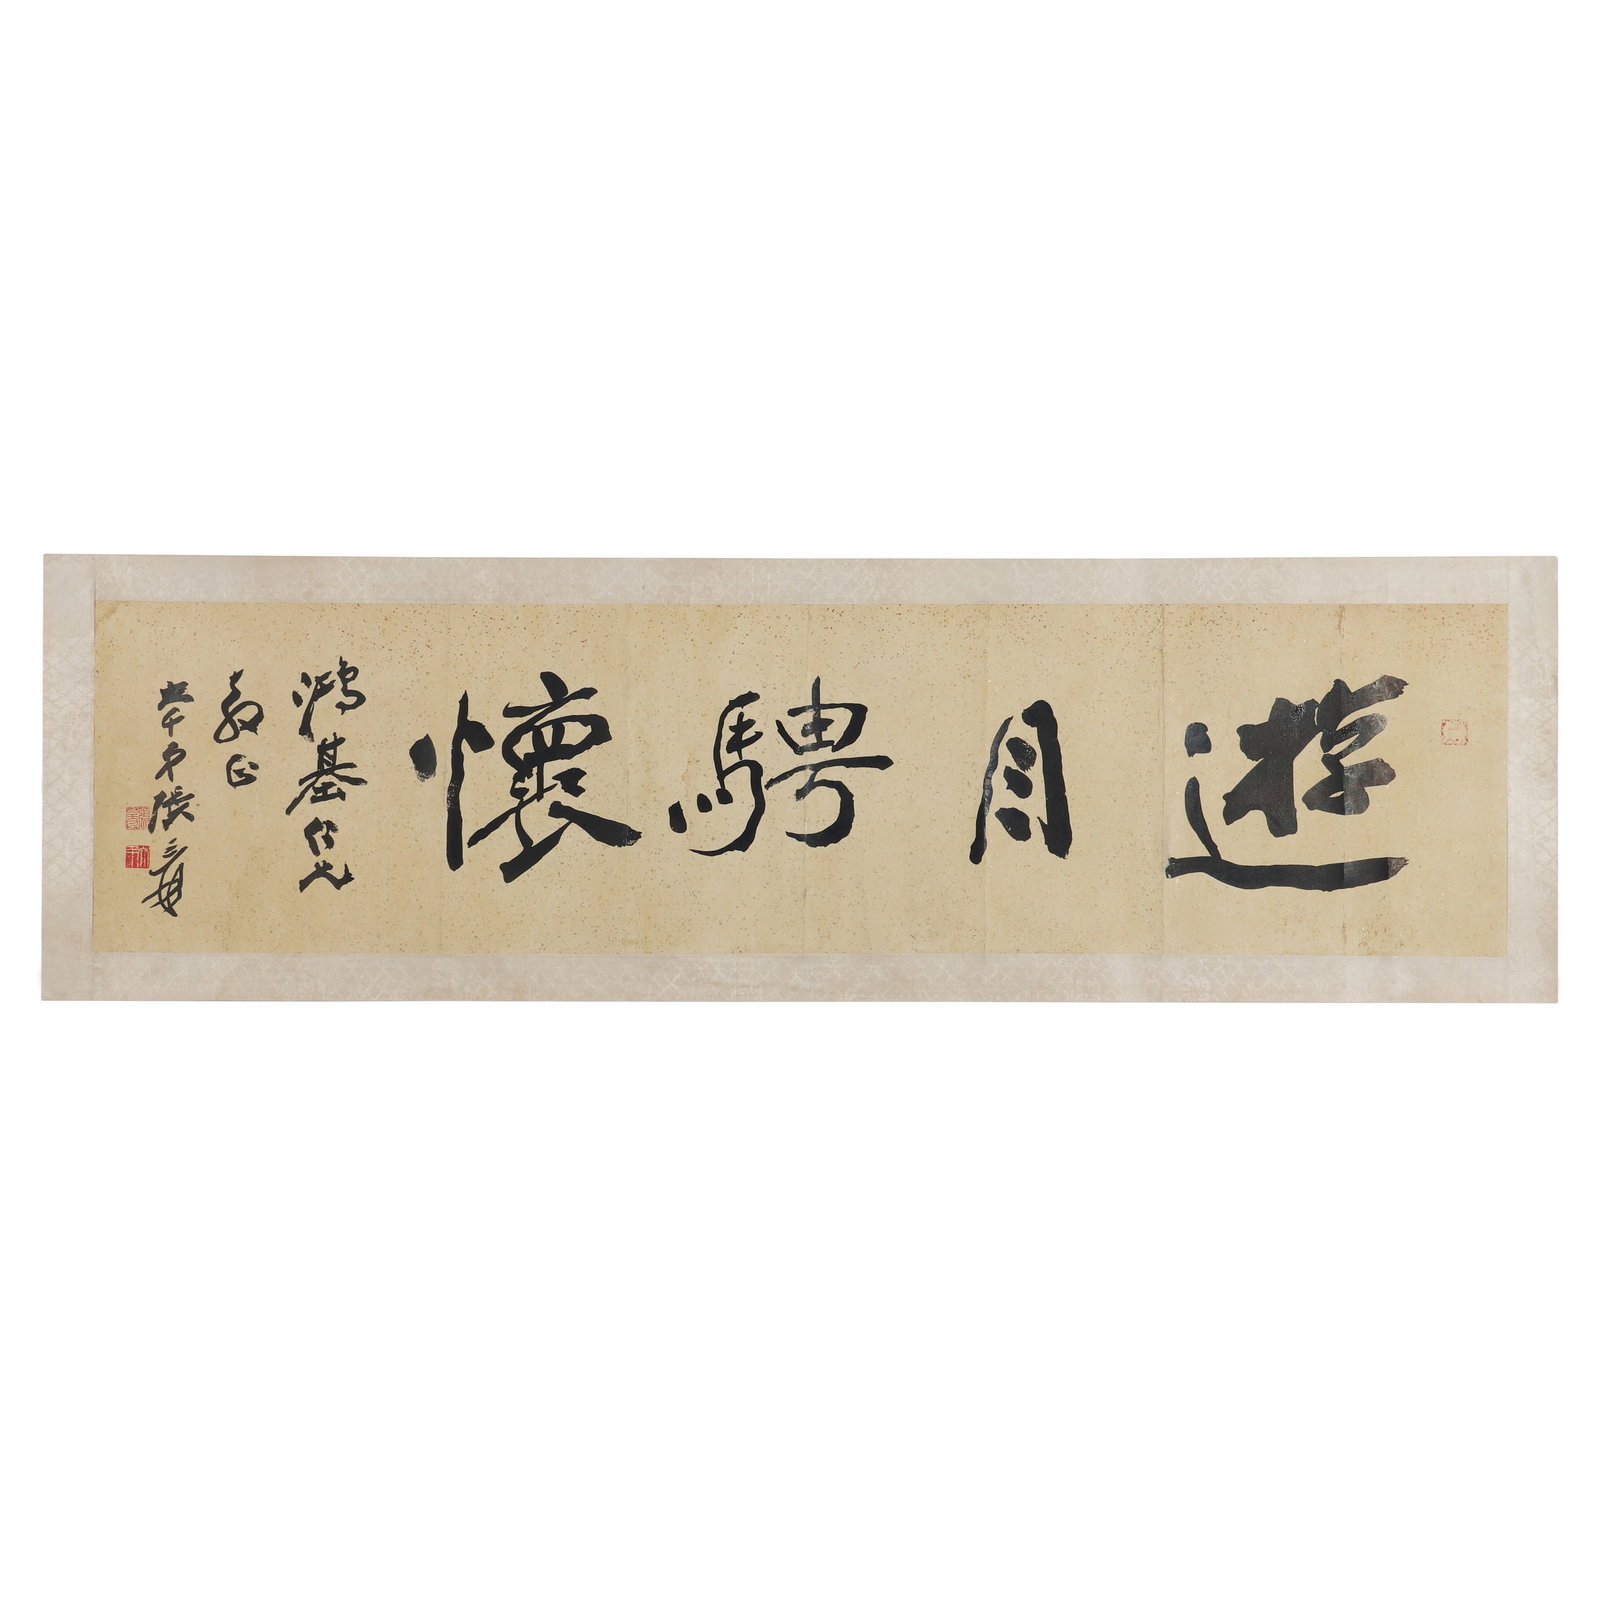 遊目騁懷
鴻基仁兄
教正
大千弟張爰